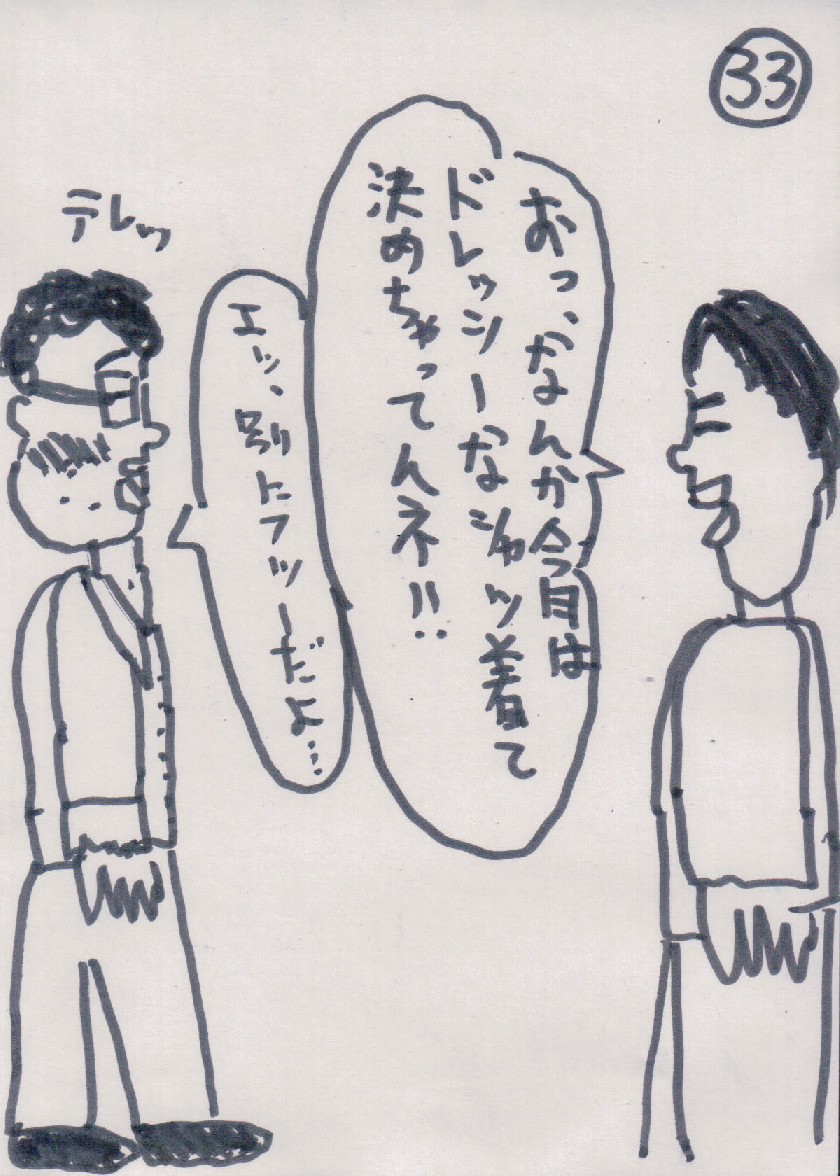 33
おっ、なんか今日は
ドレッシーなシャツ着て
決めちゃってんネ!!
エッ、別にフツーだよ…
テレッ